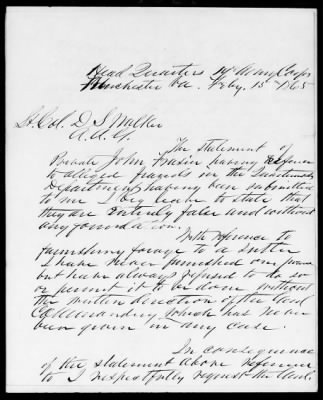 Head Quarters 19" Army Corps
Winchester Va. Feby. 15" 1865
Lt. Col. D. S. Walker
A. A. G.
The statement of
Private John Frasier having reference
to alleged frauds in the Quartermasters
Department, having been submitted
to me I beg leave to state that
they are Entirely false and without
any foundation.
With reference to
furnishing forage to a Sutler
I have Never furnished one pound
but have always refused to do so
or permit it to be done without
the written direction of the Genl
Commanding which has never
been given in any case.
In consequence
of the statement above referred
to I respectfully request the Genl.